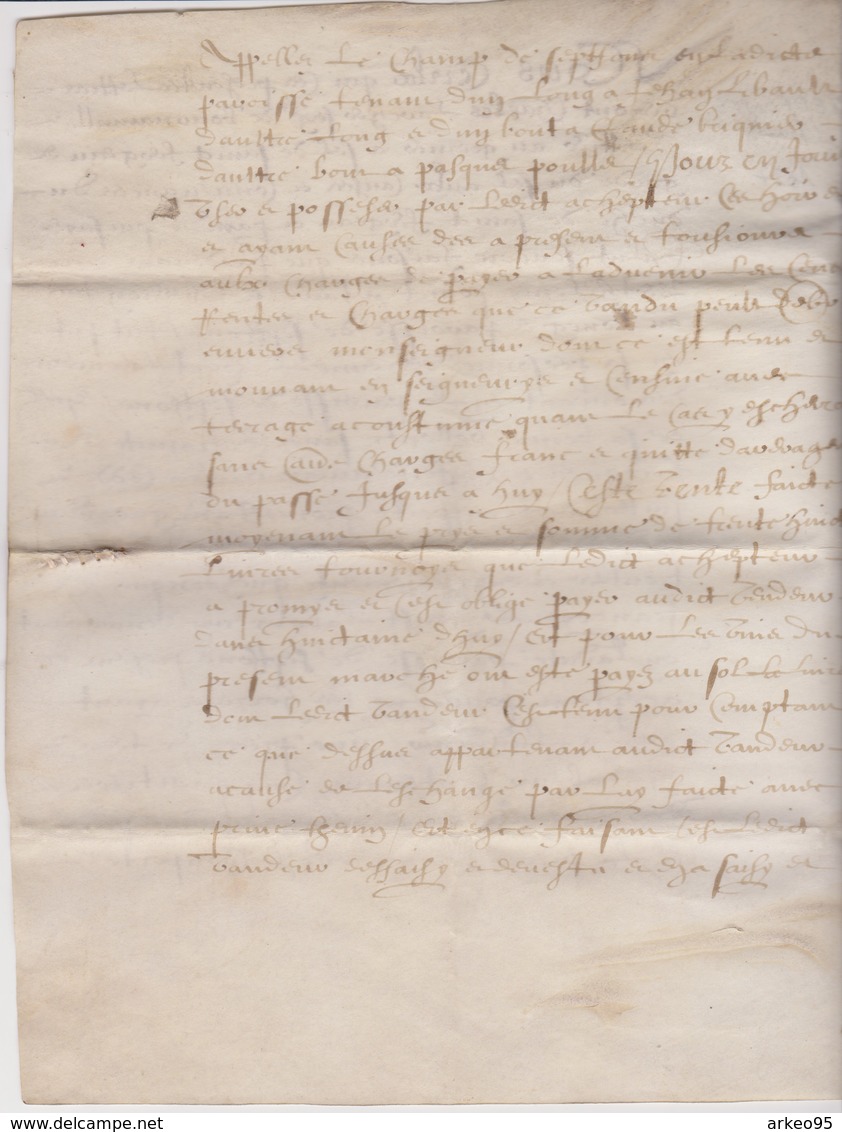 Appeller le champ de septfour en ladicte
paroisse tenant dun long a Jehan Libault
daultre long et dun bout a Claude
daultre bout a pasquer poulle / Pour en Jouir
user et posseser par ledict achepteur ses hoirs
et ayant causes des a present et tousiours
aux charges de payer a ladvenir les cens
Rentes et charges que ce vandu peult debvoir
envers monseigneur dont ce est tenu et
mouvant en seigneurye et censive avec
terrage acoustumé quant le cas y eschera
sans aultre charges franc et quitte darerages
du passé Jusques a huy / Ceste vente faicte
moyenant le prys et somme de trente huict
Livres tournoys que ledict achepteur
a promys et cest obligé payer audict vendeur
dans huictaine dhuy / Et pour les vins du
present marché ont esté payez au sol la livre
dont ledict vandeur cest tenu pour comptant
ce que dessus appartenant audict vandeur
acause de leschange par luy faicte avec
/ Et en ce faisant cest ledict
vandeur dessaisy et devestu et en a saisy et
delcampe.net
arkeo95